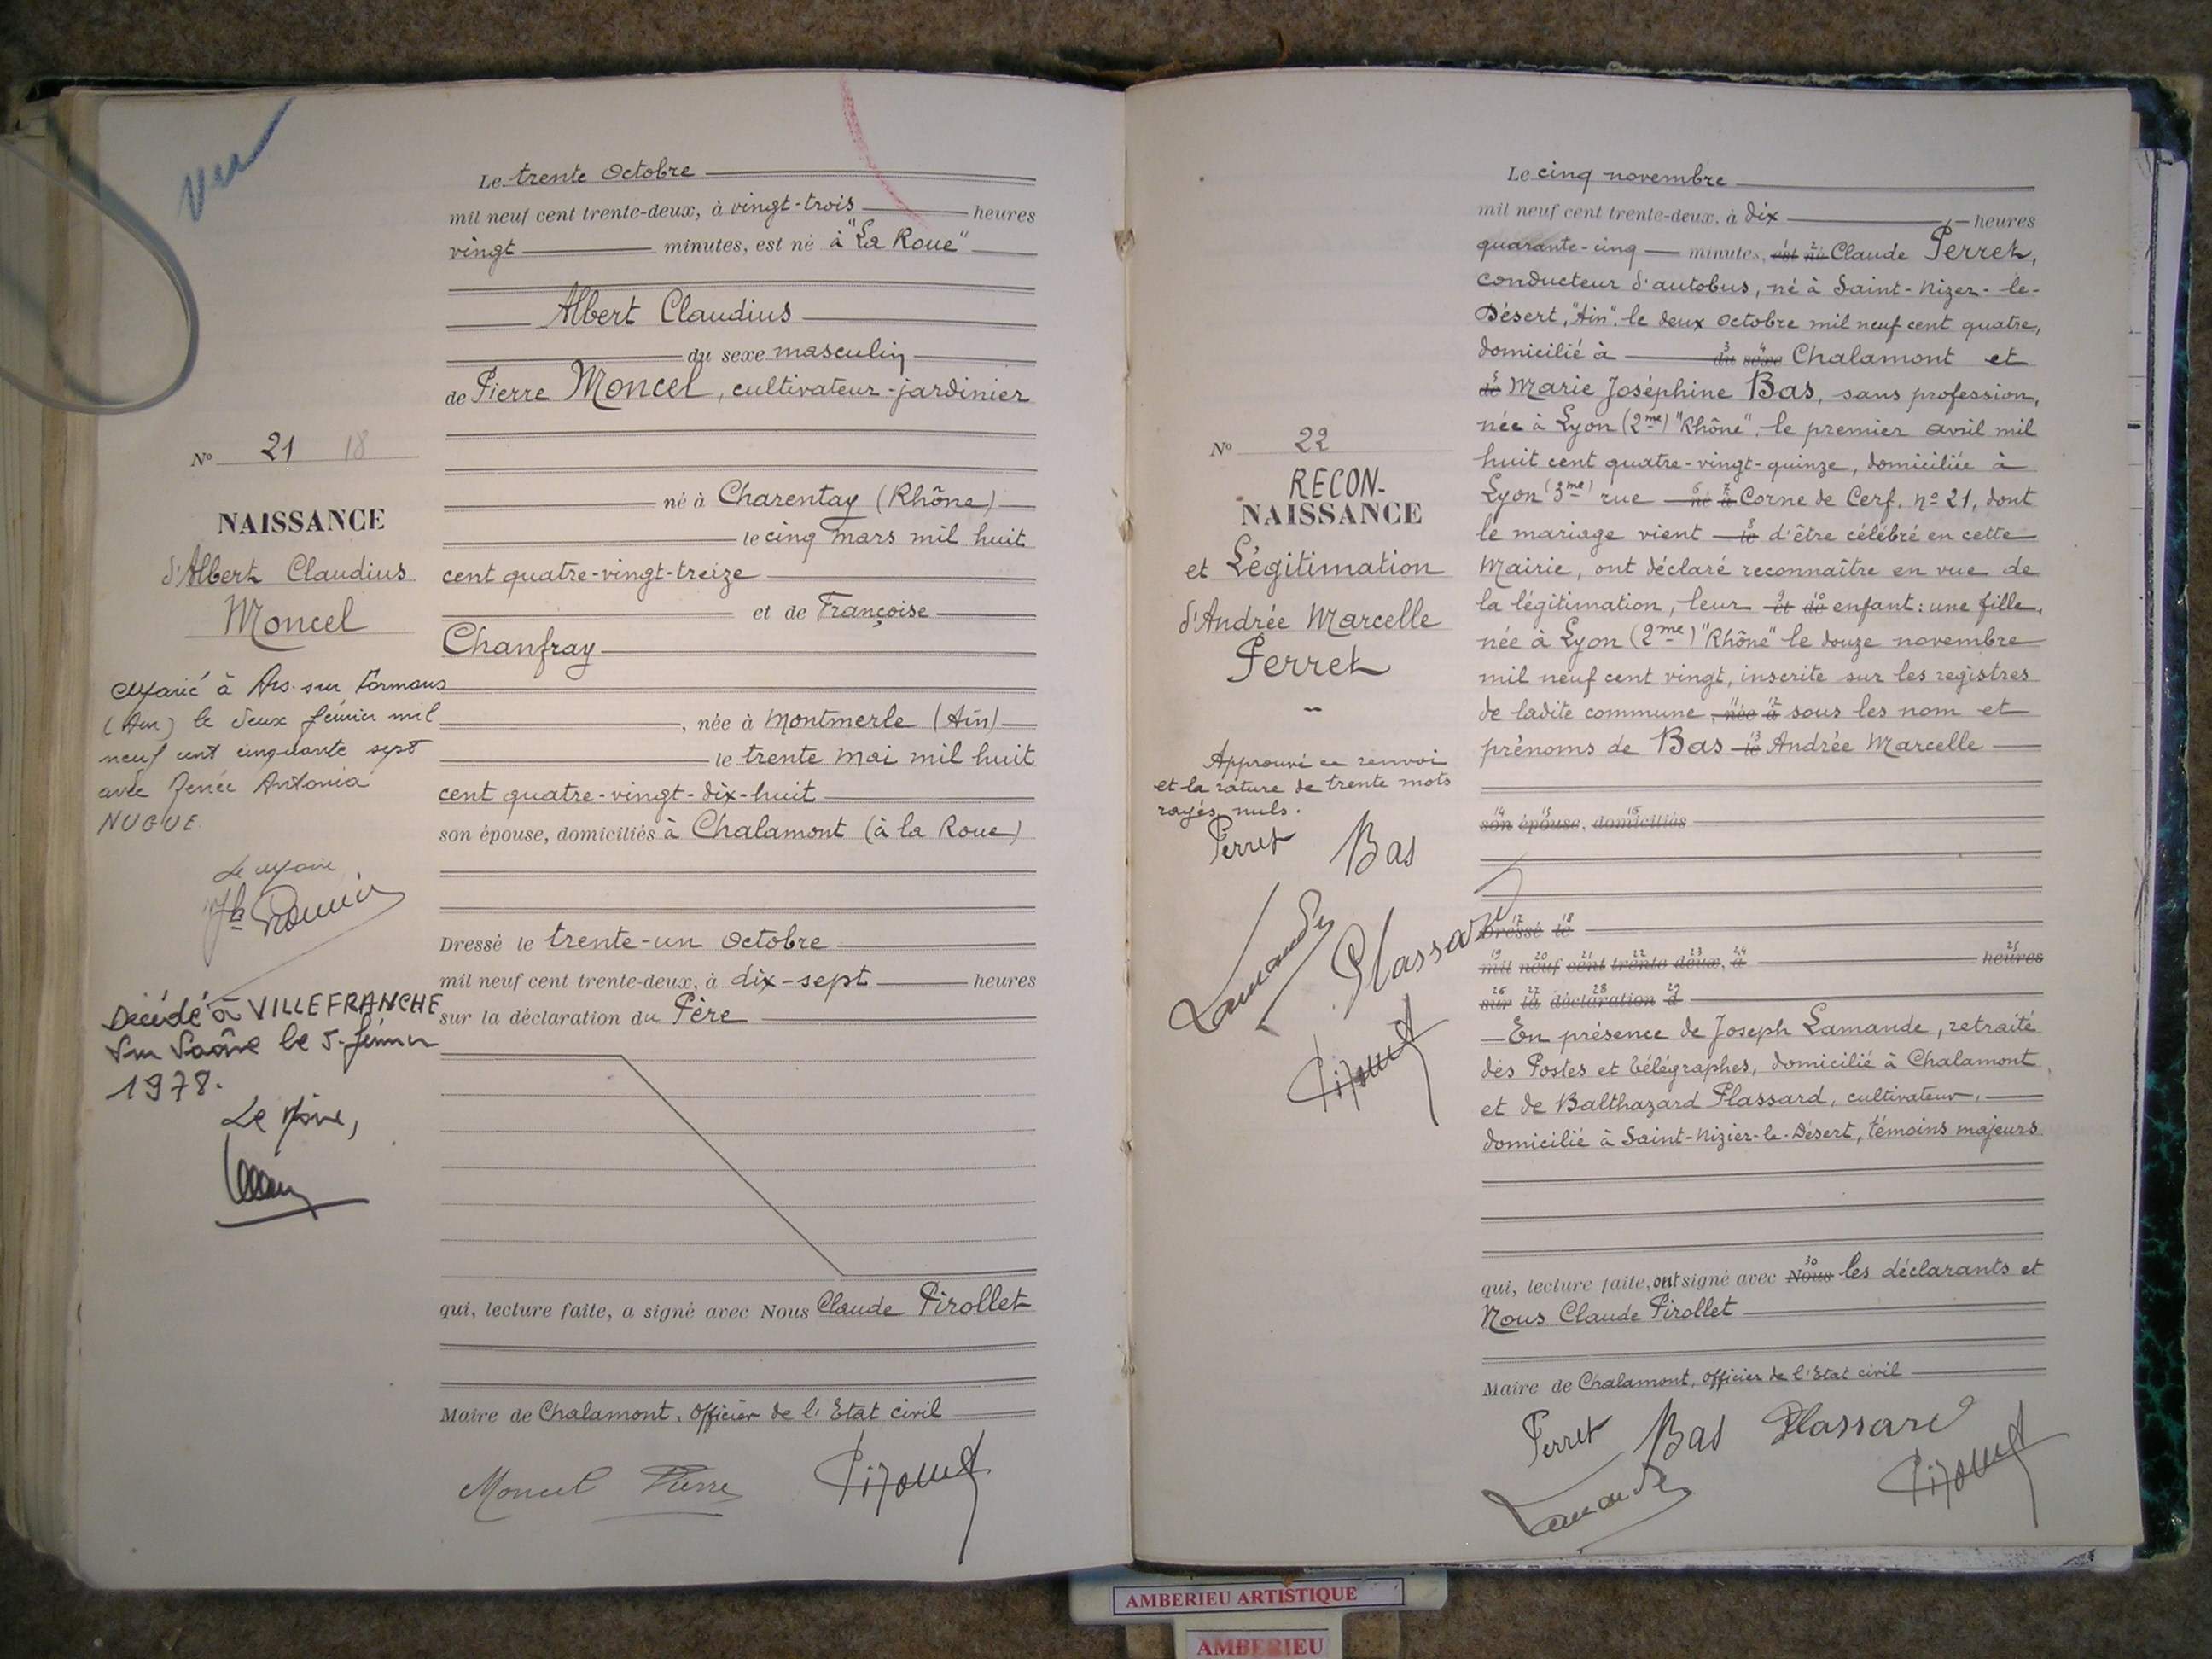 vu
Le trente Octobre
mil neuf cent trente-deux, à vingt-trois heures
vingt minutes, est né à "La Roue"
Albert Claudius
du sexe masculin
de Pierre Moncel, cultivateur-jardinier
né à Charentay (Rhône)
le cinq mars mil huit
cent quatre-vingt-treize
et de Françoise
Chanfray
, née à Montmerle (Ain)
le trente mai mil huit
cent quatre-vingt-dix-huit
son épouse, domiciliés à Chalamont (à la Roue)
Dressé le trente-un Octobre
mil neuf cent trente-deux, à dix-sept heures
sur la déclaration du Père
qui, lecture faite, a signé avec Nous Claude Pirollet
Maire de Chalamont, Officier de l'Etat civil
Moncel Pierre Pirollet
No 21 18
NAISSANCE
d'Albert Claudius
Moncel
Marié à Ars-sur Formans
(Ain) le deux février mil
neuf cent cinquante sept
avec Renée Antonia
NUGUE
Le Maire
Décédé à VILLEFRANCHE
sur Saône le 5 février
1978.
Le Maire,
Le cinq novembre
mil neuf cent trente-deux, à dix heures
quarante-cinq minutes, est 1 né 2 Claude Perret,
conducteur d'autobus, né à Saint-Nizer-le-
Désert, "Ain", le deux Octobre mil neuf cent quatre,
domicilié à du 3 sexe 4 Chalamont et
de 5 Marie Joséphine Bas, sans profession,
née à Lyon (2me) "Rhône", le premier avril mil
huit cent quatre-vingt-quinze, domiciliée à
Lyon (3me) rue né 6 à 7 Corne de Cerf, no 21, dont
le mariage vient le 8 d'être célébré en cette
Mairie, ont déclaré reconnaître en vue de
la légitimation, leur et 9 de 10 enfant: une fille,
née à Lyon (2me) "Rhône" le douze novembre
mil neuf cent vingt, inscrite sur les registres
de ladite commune, née 11 à 12 sous les nom et
prénoms de Bas le 13 Andrée Marcelle
son 14 épouse 15, domiciliés 16
Dressé 17 le 18
mil 19 neuf 20 cent 21 trente 22 deux 23, à 24 heures 25
sur 26 la 27 déclaration 28 d 29
En présence de Joseph Lamande, retraité
des Postes et télégraphes, domicilié à Chalamont
et de Balthazard Plassard, cultivateur,
domicilié à Saint-Nizier-le-Désert, témoins majeurs
qui, lecture faite, ont signé avec Nous 30 les déclarants et
Nous Claude Pirollet
Maire de Chalamont, Officier de l'Etat civil
Perret Bas Plassard
Lamande Pirollet
No 22
RECON-
NAISSANCE
et Légitimation
d'Andrée Marcelle
Perret
Approuvé ce renvoi
et la rature de trente mots
rayés nuls.
Perret Bas
Lamande Plassard
Pirollet
AMBERIEU ARTISTIQUE
AMBERIEU